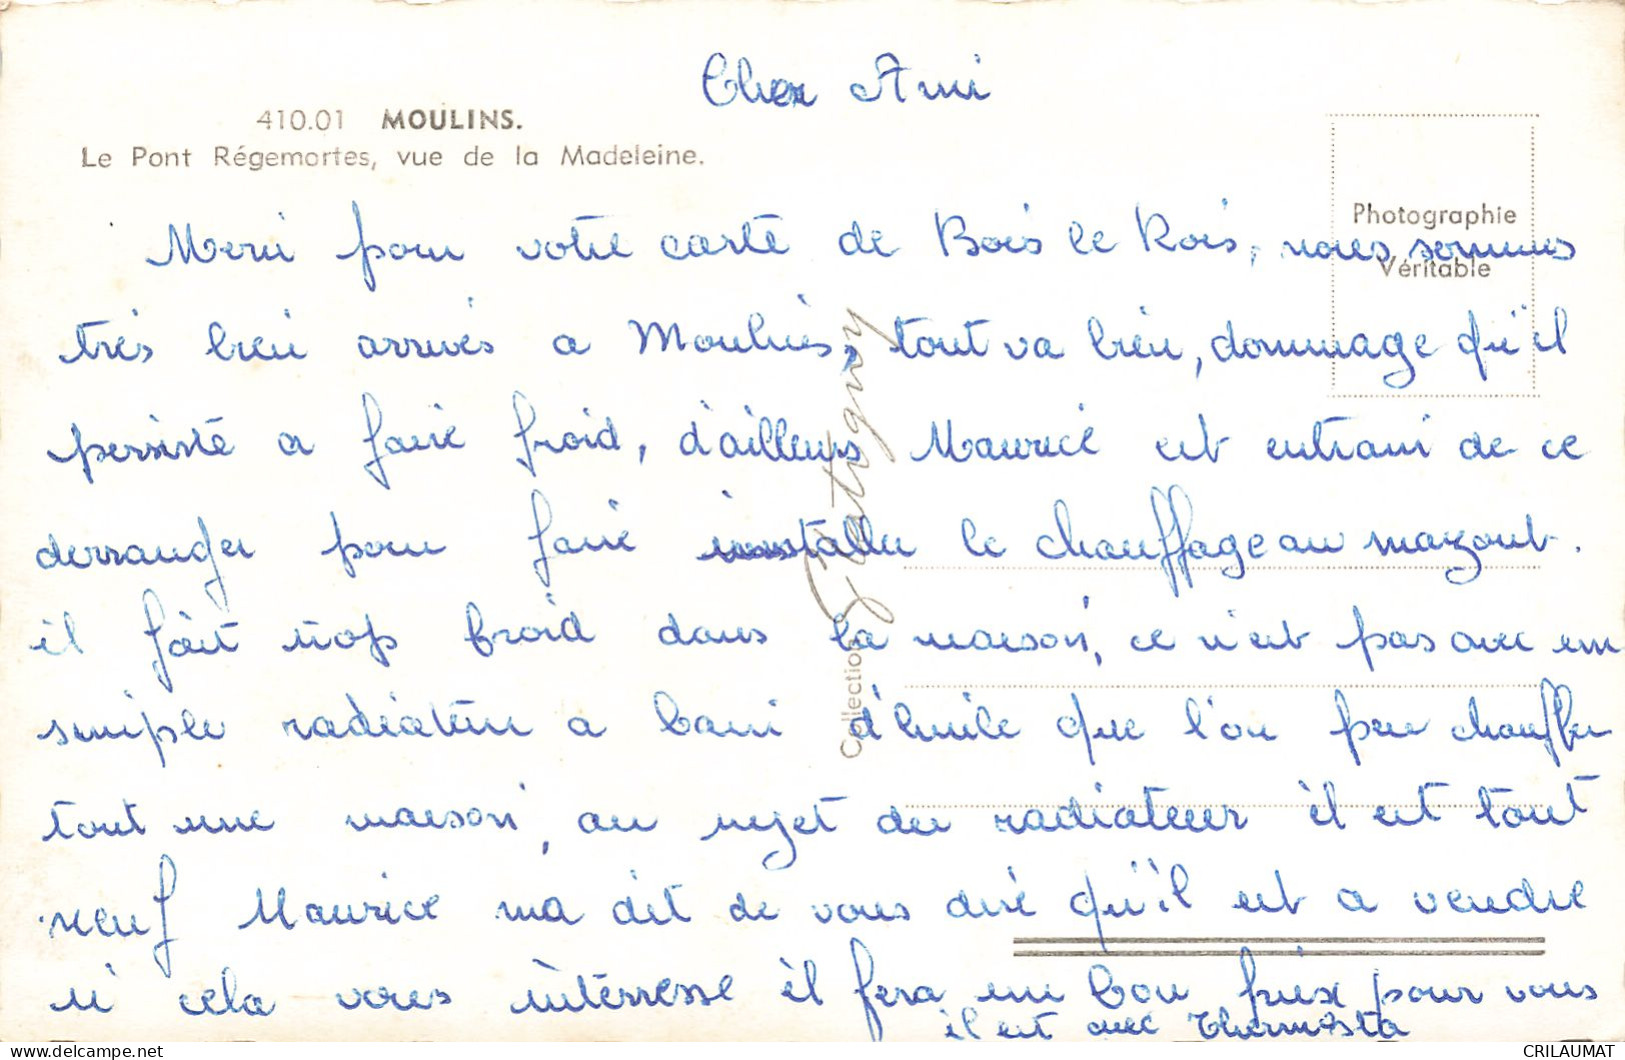 Cher Ami
410.01 MOULINS.
Le Pont Régemortes, vue de la Madeleine.
Photographie
Véritable
Merci pour votre carte de Bois le Rois, nous sommes
très bien arrivés a Moulins, tout va bien, dommage qu'il
persiste a faire froid, d'ailleurs Maurice est entrain de ce
derranger pour faire installer le chauffage au mazout.
il fait trop froid dans la maison, ce n'est pas avec un
simple radiateur a bain d'huile que l'on peu chauffer
tout une maison, au sujet du radiateur il est tout
neuf Maurice ma dit de vous dire qu'il est a vendre
si cela vous intérresse il fera un bon prix pour vous
il est avec Thermosta
Collection
CRILAUMAT